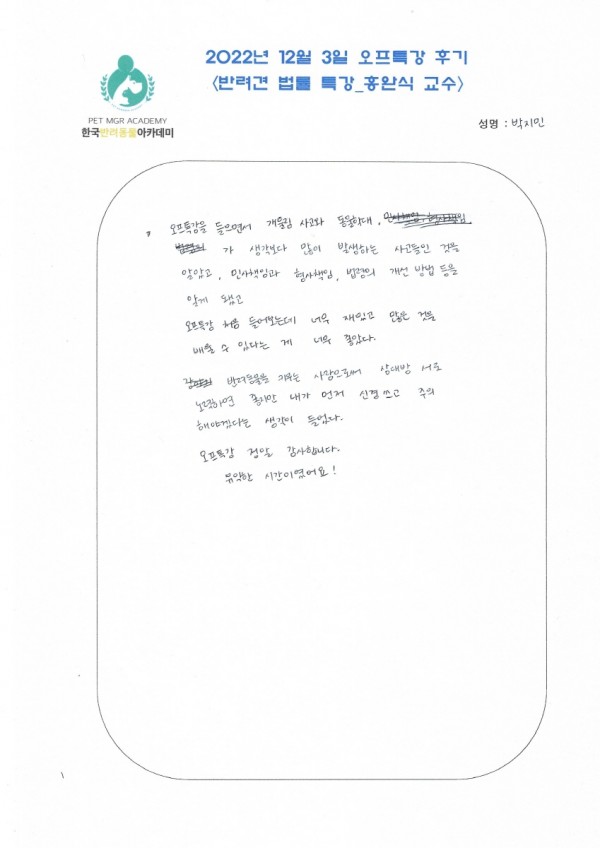 2022년 12월 3일 오프특강 후기
<반려견 법률 특강_홍완식 교수>
PET MGR ACADEMY
한국반려동물아카데미
성명 : 박지민
오프특강을 들으면서 개물림 사고와 동물학대, 민사책임, 형사책임
가 생각보다 많이 발생하는 사고들인 것을
알았고, 민사책임과 형사책임, 법령의 개선 방법 등을
알게 됐고
오프특강 처음 들어보는데 너무 재밌고 많은 것을
배울 수 있다는 게 너무 좋았다.
반려동물을 키우는 사람으로써 상대방 서로
노력하면 좋지만 내가 먼저 신경 쓰고 주의
해야겠다는 생각이 들었다.
오프특강 정말 감사합니다.
유익한 시간이였어요!